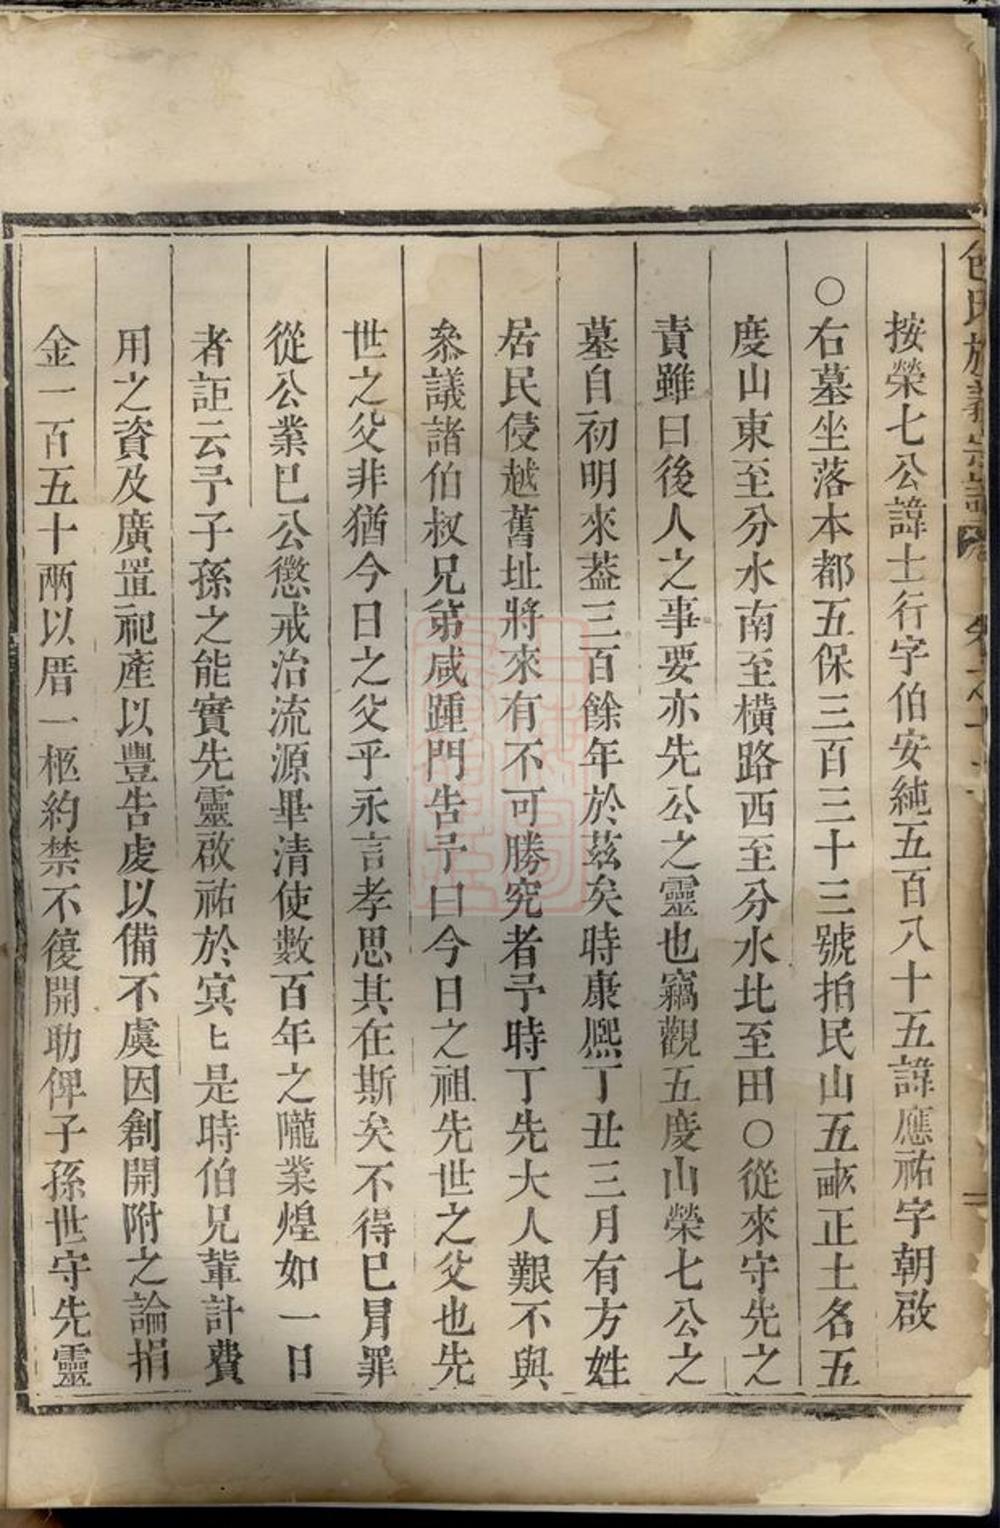 包氏族義宗譜
按榮七公諱士行字伯安純五百八十五諱應祐字朝啟
○右墓坐落本都五保三百三十三號拍民山五畝正土名五
度山東至分水南至橫路西至分水北至田○從來守先之
責雖曰後人之事要亦先公之靈也竊觀五度山榮七公之
墓自初明來葢三百餘年於茲矣時康熈丁丑三月有方姓
居民侵越舊址將來有不可勝究者予時丁先大人艱不與
叅議諸伯叔兄弟咸踵門告予曰今日之祖先世之父也先
世之父非猶今日之父乎永言孝思其在斯矣不得已冐罪
從公業已公懲戒治流源畢清使數百年之隴業煌如一日
者詎云予子孫之能實先靈啟祐於冥匕是時伯兄輩計費
用之資及廣置祀產以豐告虔以備不虞因創開附之論捐
金一百五十兩以厝一柩約禁不復開助俾子孫世守先靈